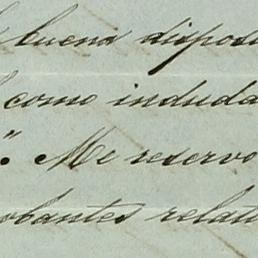 buena dispos
como induda
". Me reservo
obantes relat